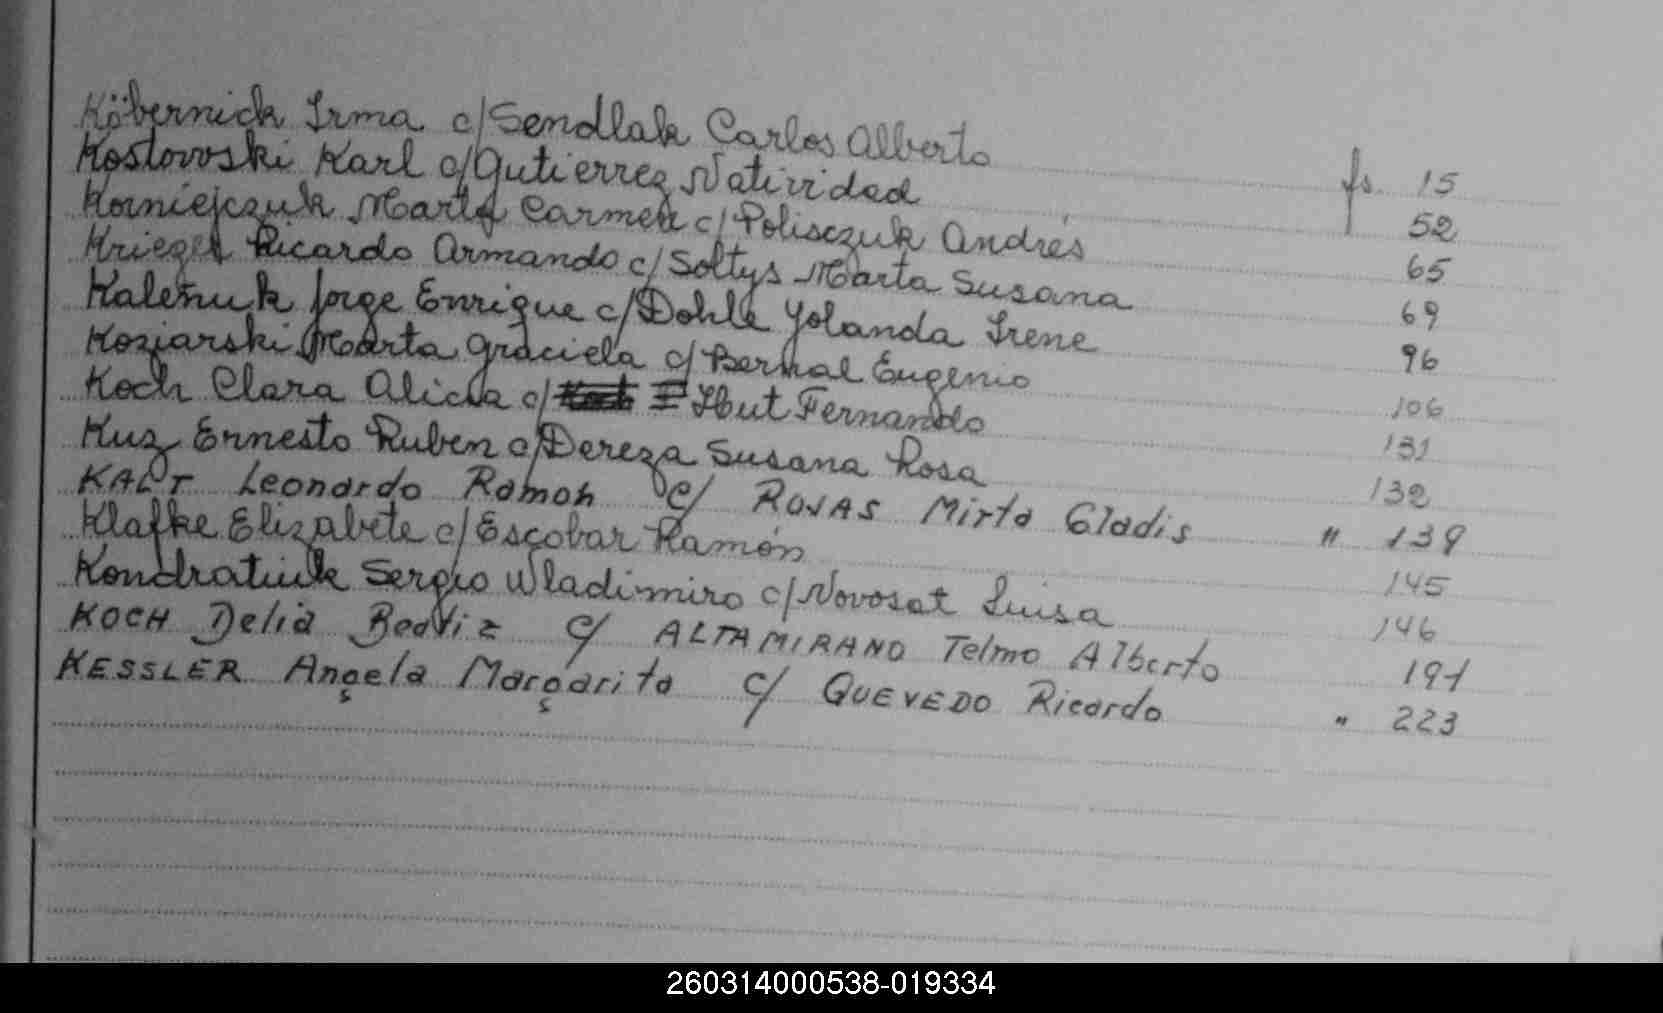 Köbernick Irma c/ Sendlak Carlos Alberto fs. 15
Kostowski Karl c/ Gutierrez Natividad 52
Korniejczuk Marta Carmen c/ Polisczuk Andrés 65
Krieger Ricardo Armando c/ Soltys Marta Susana 69
Kaleñuk Jorge Enrique c/ Dohle Yolanda Irene 96
Koziarski Marta Graciela c/ Bernal Eugenio 106
Koch Clara Alicia c/ Hut Fernando 131
Kuz Ernesto Ruben c/ Dereza Susana Rosa 132
KALT Leonardo Ramon c/ ROJAS Mirta Gladis " 139
Klafke Elizabete c/ Escobar Ramón 145
Kondratiuk Sergio Wladimiro c/ Novosat Luisa 146
KOCH Delia Beatriz c/ ALTAMIRANO Telmo Alberto 191
KESSLER Angela Margarita c/ QUEVEDO Ricardo " 223
260314000538-019334